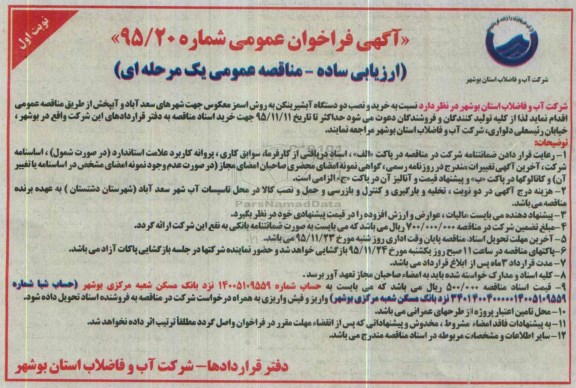 نوبت اول
شرکت آب و فاضلاب استان بوشهر
«آگهی فراخوان عمومی شماره ۹۵/۲۰»
(ارزیابی ساده - مناقصه عمومی یک مرحله ای)
شرکت آب و فاضلاب استان بوشهر در نظر دارد نسبت به خرید و نصب دو دستگاه آبشیرینکن به روش اسمز معکوس جهت شهرهای سعد آباد و آبپخش از طریق مناقصه عمومی
اقدام نماید لذا از کلیه تولید کنندگان و فروشندگان دعوت می شود حداکثر تا تاریخ ۹۵/۱۱/۱۱ جهت خرید اسناد مناقصه به دفتر قراردادهای این شرکت واقع در بوشهر،
خیابان رئیسعلی دلواری، شرکت آب و فاضلاب استان بوشهر مراجعه نمایند.
توضیحات:
۱- رعایت قرار دادن ضمانتنامه شرکت در مناقصه در پاکت «الف»، اسناد دریافتی از کارفرما، سوابق کاری، پروانه کاربرد علامت استاندارد (در صورت شمول)، اساسنامه
شرکت، آخرین آگهی تغییرات مندرج در روزنامه رسمی، گواهی نمونه امضای محضری صاحبان امضای مجاز (در صورت عدم وجود نمونه امضای مشخص در اساسنامه یا تغییر
آن) و کاتالوگها در پاکت «ب» و پیشنهاد قیمت و آنالیز آن در پاکت «ج» الزامی است.
۲- هزینه درج آگهی در دو نوبت، تخلیه و بارگیری و کنترل و بازرسی و حمل و نصب کالا در محل تاسیسات آب شهر سعد آباد (شهرستان دشتستان) به عهده برنده
مناقصه می باشد.
۳- پیشنهاد دهنده می بایست مالیات، عوارض و ارزش افزوده را در قیمت پیشنهادی خود در نظر بگیرد.
۴- مبلغ تضمین شرکت در مناقصه ۷۰۰/۰۰۰/۰۰۰ ریال می باشد که می بایست به صورت ضمانتنامه بانکی به نفع این شرکت ارائه گردد.
۵- آخرین مهلت تحویل اسناد مناقصه پایان وقت اداری روز شنبه مورخ ۹۵/۱۱/۲۳ می باشد.
۶- پاکتهای مناقصه در ساعت ۱۱ صبح روز یکشنبه مورخ ۹۵/۱۱/۲۴ بازگشایی خواهد شد و حضور نماینده شرکتها در جلسه بازگشایی پاکات آزاد می باشد.
۷- مدت قرارداد ۳ ماه پس از ابلاغ قرارداد می باشد.
۸- کلیه اسناد و مدارک خواسته شده باید به امضاء صاحبان مجاز تعهد آور برسد.
۹- قیمت اسناد مناقصه ۵۰۰/۰۰۰ ریال می باشد که می بایست به حساب شماره ۱۴۰۰۵۱۰۹۵۵۹ نزد بانک مسکن شعبه مرکزی بوشهر (حساب شبا شماره
نزد بانک مسکن شعبه مرکزی بوشهر) واریز و فیش واریزی به همراه درخواست شرکت در مناقصه به فروشنده اسناد تحویل داده شود.
۱۰- محل تامین اعتبار پروژه از طرحهای عمرانی می باشد.
۱۱- به پیشنهادات فاقد امضاء، مشروط، مخدوش و پیشنهاداتی که پس از انقضاء مهلت مقرر در فراخوان واصل گردد مطلقاً ترتیب اثر داده نخواهد شد.
۱۲- سایر اطلاعات و مشخصات مربوطه در اسناد مناقصه مندرج می باشد.
دفتر قراردادها- شرکت آب و فاضلاب استان بوشهر
ParsNamadData